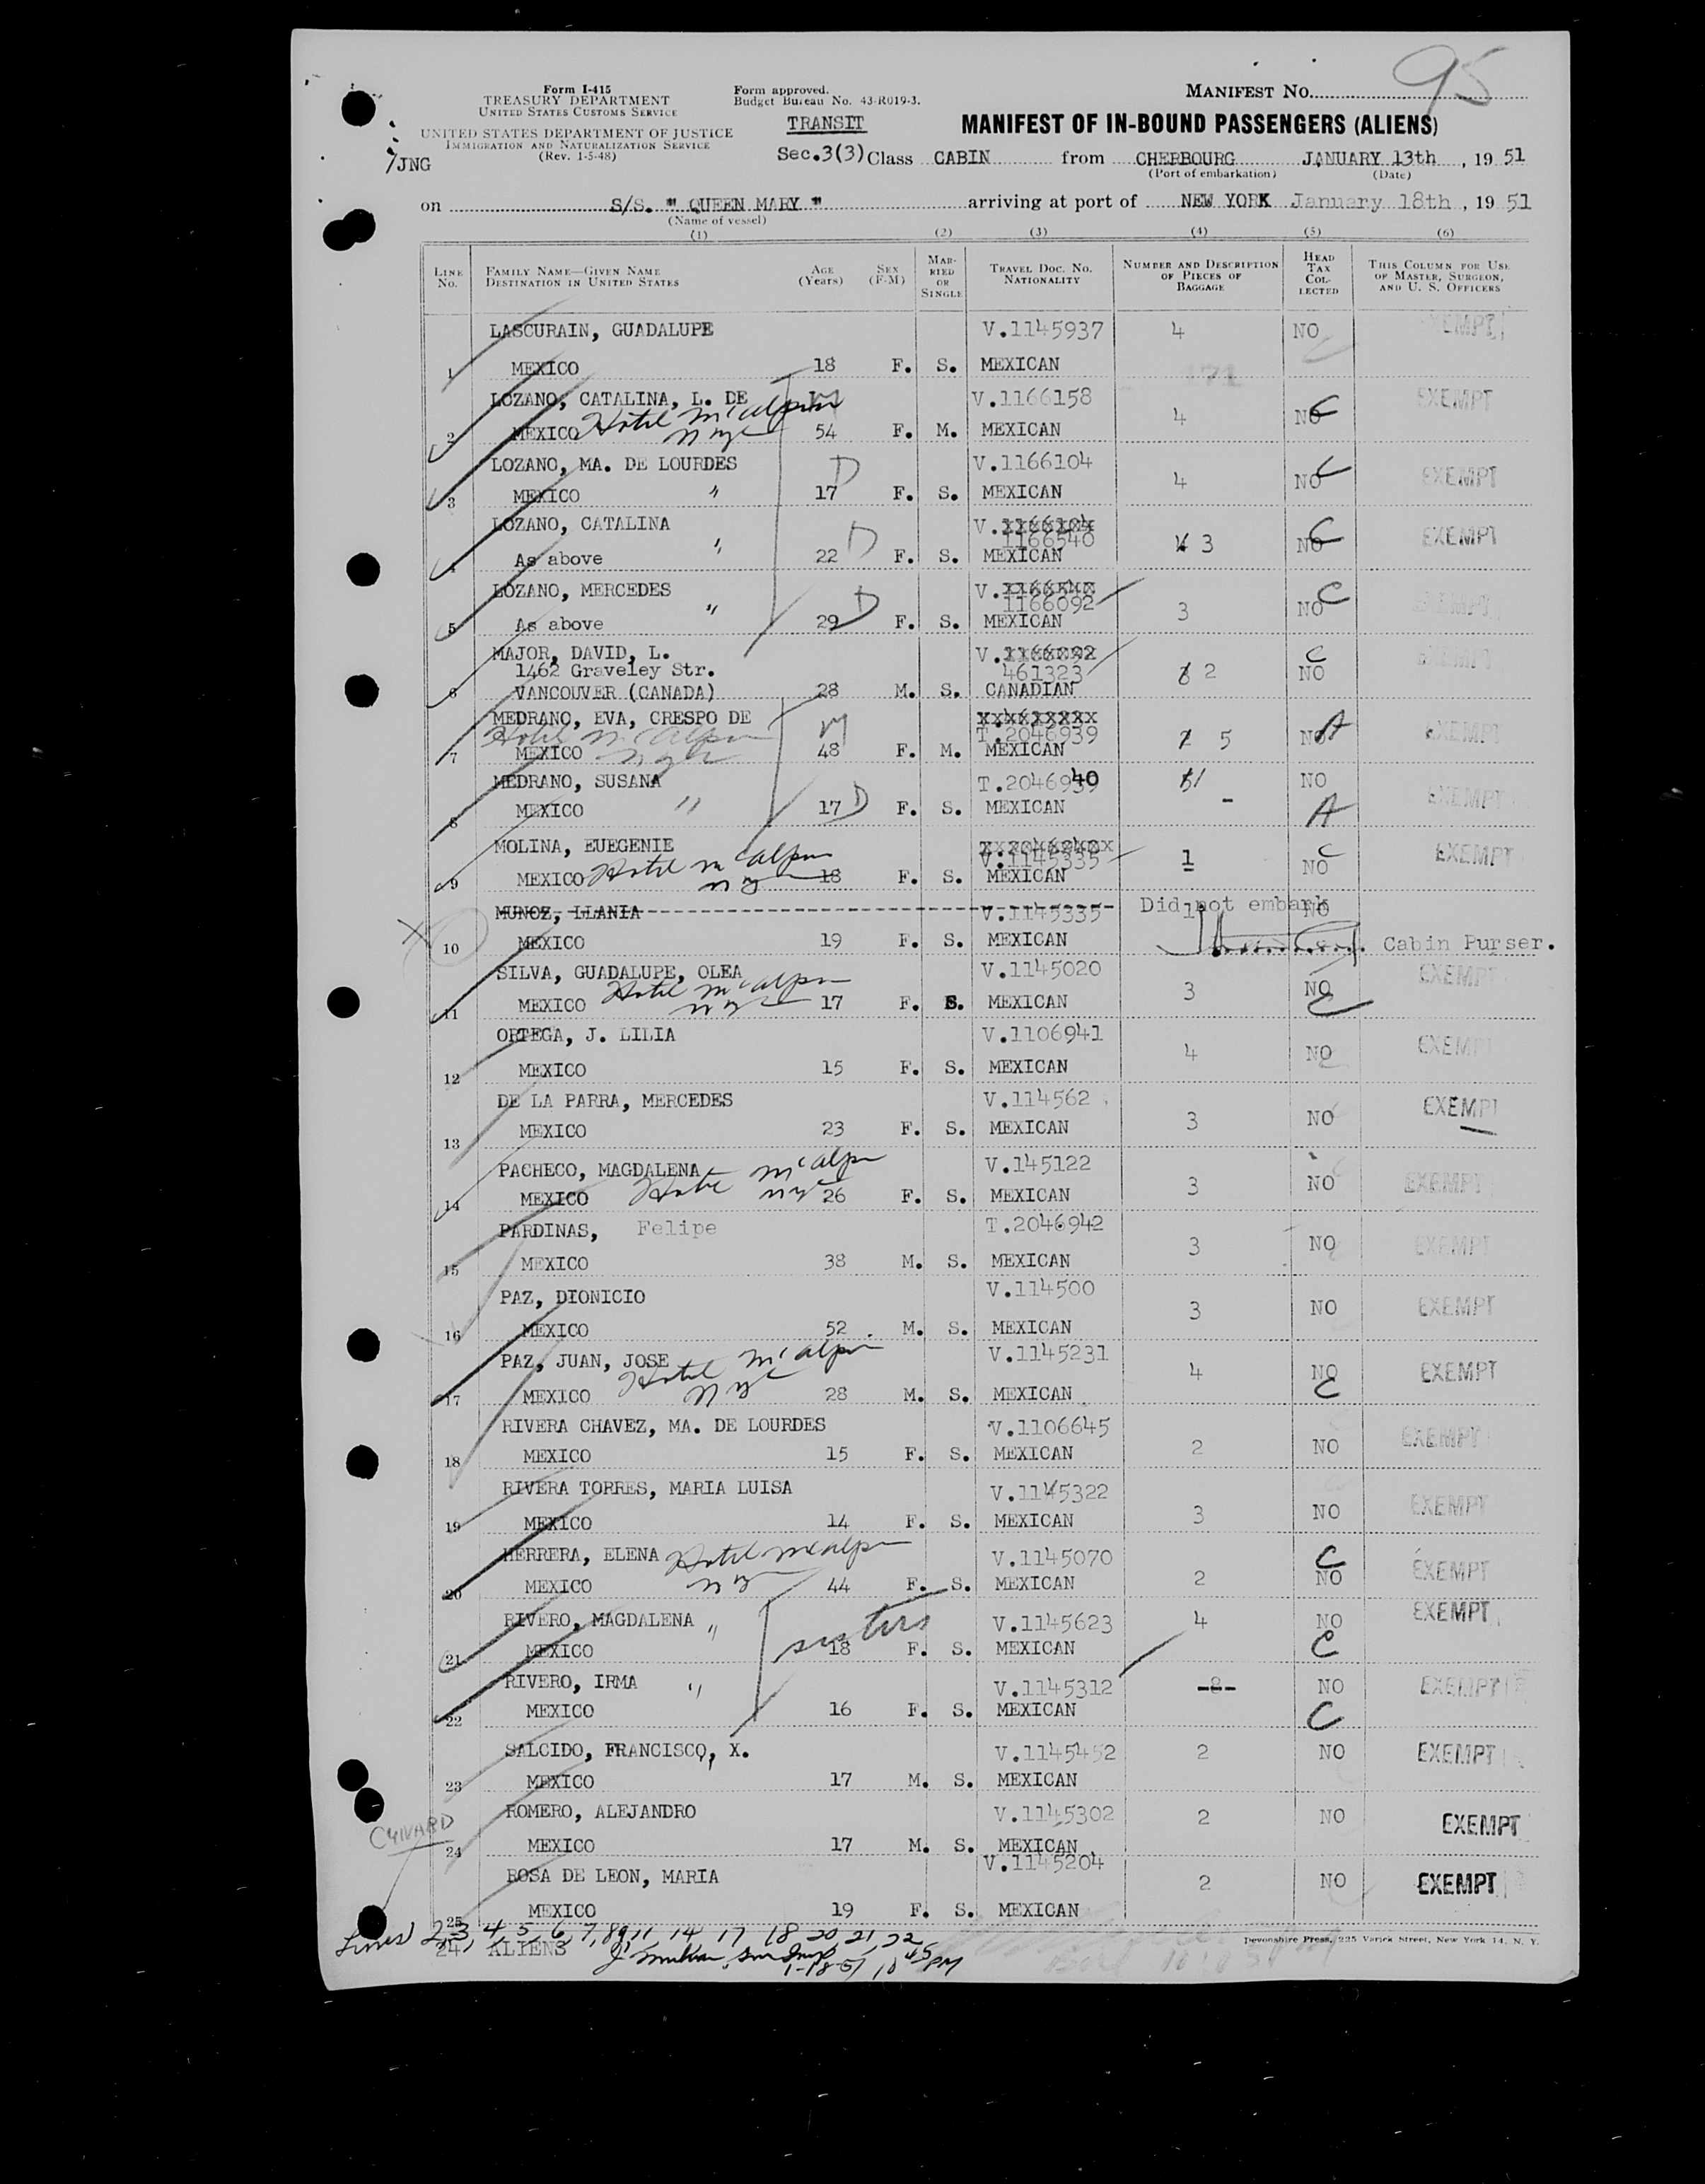 95
Form I-415
TREASURY DEPARTMENT
UNITED STATES CUSTOMS SERVICE
UNITED STATES DEPARTMENT OF JUSTICE
IMMIGRATION AND NATURALIZATION SERVICE
(Rev. 1-5-48)
7JNG
Form approved.
Budget Bureau No. 43-R019-3.
TRANSIT
MANIFEST NO.
MANIFEST OF IN-BOUND PASSENGERS (ALIENS)
Sec.3(3) Class CABIN from CHERBOURG JANUARY 13th, 19 51
(Port of embarkation) (Date)
on S/S. " QUEEN MARY " arriving at port of NEW YORK January 18th, 19 51
(Name of vessel)
(1) (2) (3) (4) (5) (6)
LINE No. FAMILY NAME—GIVEN NAME DESTINATION IN UNITED STATES AGE (Years) SEX (F-M) MARRIED OR SINGLE TRAVEL DOC. NO. NATIONALITY NUMBER AND DESCRIPTION OF PIECES OF BAGGAGE HEAD TAX COLLECTED THIS COLUMN FOR USE OF MASTER, SURGEON, AND U. S. OFFICERS
LASCURAIN, GUADALUPE V.1145937 4 NO EXEMPT
1 MEXICO 18 F. S. MEXICAN
LOZANO, CATALINA, L. DE M V.1166158 4 NO C EXEMPT
2 MEXICO Hotel McAlpin NYC 54 F. M. MEXICAN
LOZANO, MA. DE LOURDES D V.1166104 4 NO C EXEMPT
3 MEXICO " 17 F. S. MEXICAN
LOZANO, CATALINA D V.1166104 3 NO C EXEMPT
1166540
4 As above " 22 F. S. MEXICAN
LOZANO, MERCEDES D V.1166540 3 NO C EXEMPT
1166092
5 As above " 29 F. S. MEXICAN
MAJOR, DAVID, L. V.1166092 C EXEMPT
1462 Graveley Str. 461323 2 NO
6 VANCOUVER (CANADA) 28 M. S. CANADIAN
MEDRANO, EVA, CRESPO DE M
Hotel McAlpin T.2046939 5 NO A EXEMPT
7 MEXICO NYC 48 F. M. MEXICAN
MEDRANO, SUSANA T.2046940 1 NO EXEMPT
8 MEXICO " 17 D F. S. MEXICAN A
MOLINA, EUEGENIE V.1145335 1 C NO EXEMPT
9 MEXICO Hotel McAlpin NY 18 F. S. MEXICAN
MUNOZ, LLANIA V.1145335 1 Did not embark NO
10 MEXICO 19 F. S. MEXICAN Cabin Purser.
SILVA, GUADALUPE, OLEA V.1145020 3 NO C EXEMPT
11 MEXICO Hotel McAlpin NYC 17 F. S. MEXICAN
ORTEGA, J. LILIA V.1106941 4 NO EXEMPT
12 MEXICO 15 F. S. MEXICAN
DE LA PARRA, MERCEDES V.114562 3 NO EXEMPT
13 MEXICO 23 F. S. MEXICAN
PACHECO, MAGDALENA V.145122 3 NO EXEMPT
14 MEXICO Hotel McAlpin NYC 26 F. S. MEXICAN
PARDINAS, Felipe T.2046942 3 NO EXEMPT
15 MEXICO 38 M. S. MEXICAN
PAZ, DIONICIO V.114500 3 NO EXEMPT
16 MEXICO 52 M. S. MEXICAN
PAZ, JUAN, JOSE V.1145231 4 NO C EXEMPT
17 MEXICO Hotel McAlpin NYC 28 M. S. MEXICAN
RIVERA CHAVEZ, MA. DE LOURDES V.1106645 2 NO EXEMPT
18 MEXICO 15 F. S. MEXICAN
RIVERA TORRES, MARIA LUISA V.1145322 3 NO EXEMPT
19 MEXICO 14 F. S. MEXICAN
HERRERA, ELENA Hotel McAlpin V.1145070 2 C NO EXEMPT
20 MEXICO NY 44 F. S. MEXICAN
RIVERO, MAGDALENA " V.1145623 4 NO EXEMPT
21 MEXICO sisters 18 F. S. MEXICAN C
RIVERO, IRMA " V.1145312 -8- NO EXEMPT
22 MEXICO 16 F. S. MEXICAN C
SALCIDO, FRANCISCO, X. V.1145452 2 NO EXEMPT
23 MEXICO 17 M. S. MEXICAN
ROMERO, ALEJANDRO V.1145302 2 NO EXEMPT
CUNARD
24 MEXICO 17 M. S. MEXICAN
ROSA DE LEON, MARIA V.1145204 2 NO EXEMPT
25 MEXICO 19 F. S. MEXICAN
Lines 2,3,4,5,6,7,8,9,11,14,17,18,20,21,22
24, ALIENS
1-18-51 10 45 PM
Devonshire Press, 225 Varick Street, New York 14, N. Y.